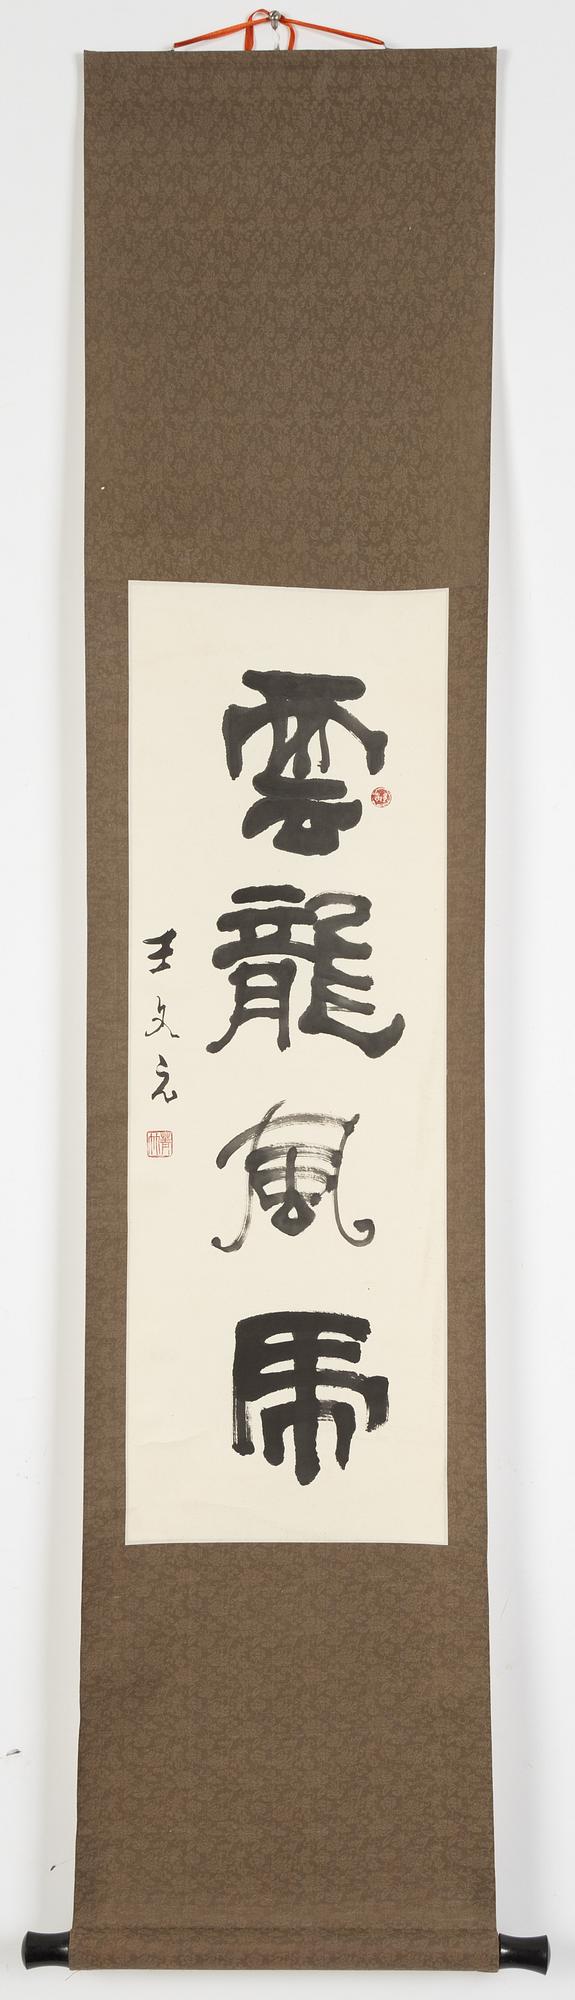 雲龍風虎
王文元